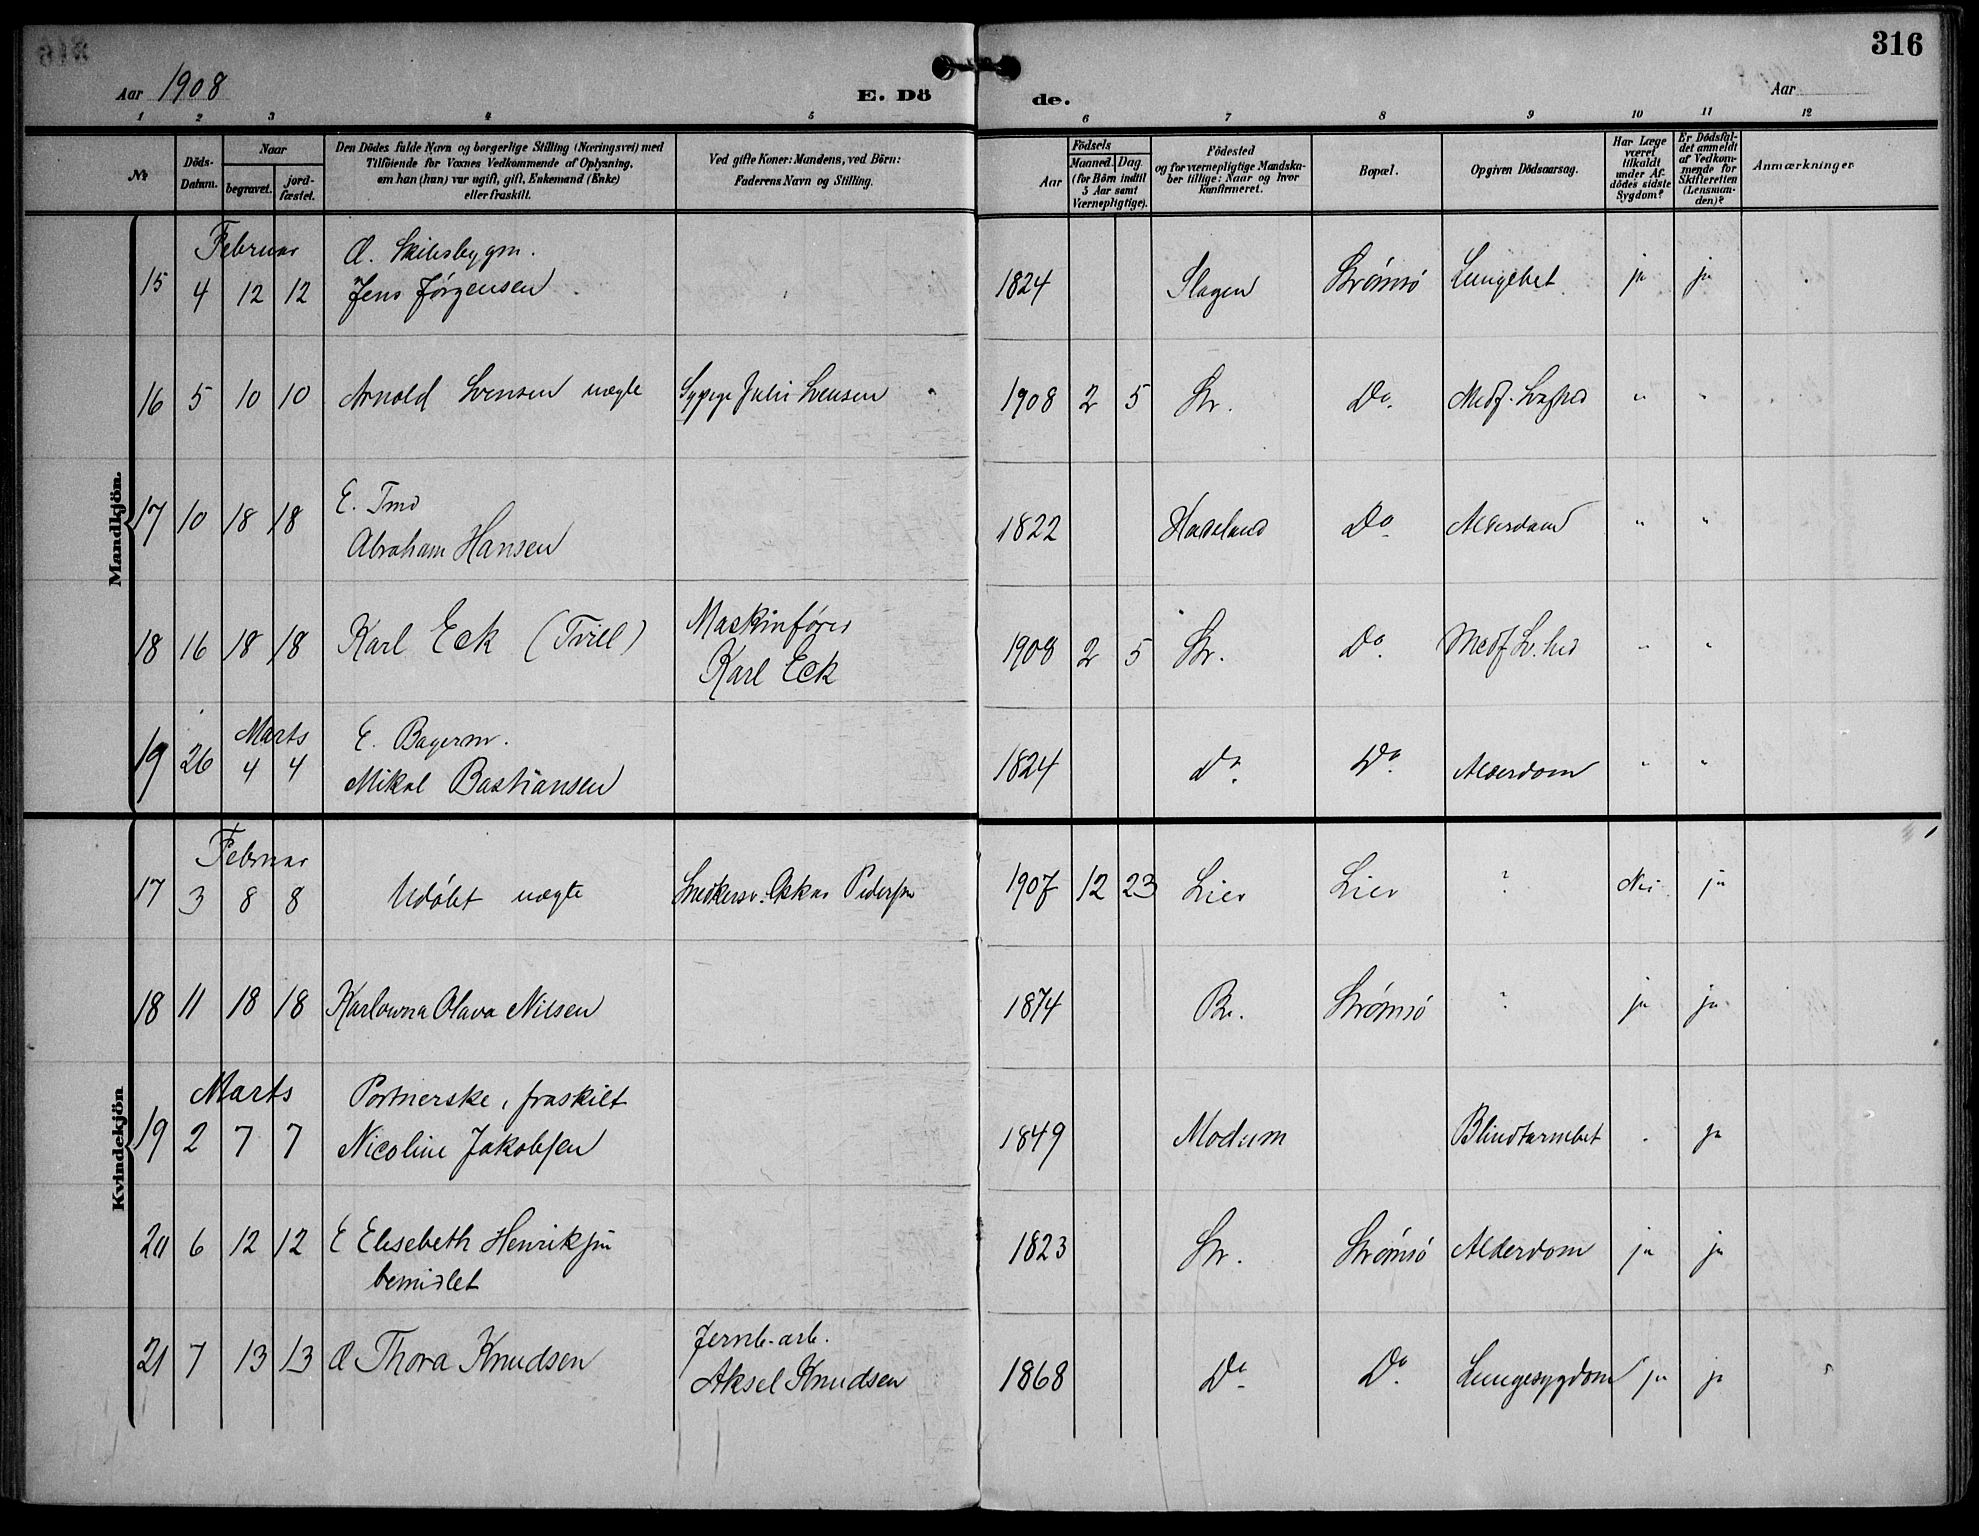 316
Aar 1908
E. Dö
de.
Aar
1 2 3 4 5 6 7 8 9 10 11 12
№
Döds-
Datum.
Naar
begravet.
jord-
fæstet.
Den Dödes fulde Navn og borgerlige Stilling (Næringsvei) med
Tilföiende for Voxnes Vedkommende af Oplysning,
om han (hun) var ugift, gift, Enkemand (Enke)
eller fraskilt.
Ved gifte Koner: Mandens, ved Börn:
Faderens Navn og Stilling.
Aar
Födsels
Maaned. Dag.
(for Börn indtil
5 Aar samt
Værnepligtige).
Födested
og for værnepligtige Mandska-
ber tillige: Naar og hvor
Konfirmeret.
Bopæl.
Opgiven Dödsaarsag.
Har Læge
været
tilkaldt
under Af-
dödes sidste
Sygdom?
Er Dödsfal-
det anmeldt
af Vedkom-
mende for
Skifteretten
(Lensman-
den)?
Anmærkninger
Mandkjön.
Februar
G. Skibsbygm.
15 4 12 12 Jens Jørgensen 1824 Slagen Strømsø Lungebet ja ja
16 5 10 10 Arnold Svensen uægte Sypige Juli Svensen 1908 2 5 Str. Do. Medf. Svaghed " "
E. Tmd
17 10 18 18 Abraham Hansen 1822 Hadeland Do Alderdom " "
18 16 18 18 Karl Eck (Tvill) Maskinfører
Karl Eck 1908 2 5 Str. Do. Medf. Sv.hed " "
Marts
E. Bagerm.
19 26 4 4 Mikal Bastiansen 1824 do. Do. Alderdom " "
Kvindekjön
Februar
17 3 8 8 Udøbt uægte Snedkersv. Oskar Pedersen 1907 12 23 Lier Lier ? Nei ja
18 11 18 18 Karlovna Olava Nilsen 1874 Br. Strømsø ? ja ja
Marts
Portnerske, fraskilt
19 2 7 7 Nicoline Jakobsen 1849 Modum Blindtarmbet . ja
20 6 12 12 E Elisebeth Henriksen 1823 Str. Strømsø Alderdom ja ja
bemidlet
21 7 13 13 G Thora Knudsen Jernb.-arb.
Aksel Knudsen 1868 Do Do. Lungesygdom ja ja